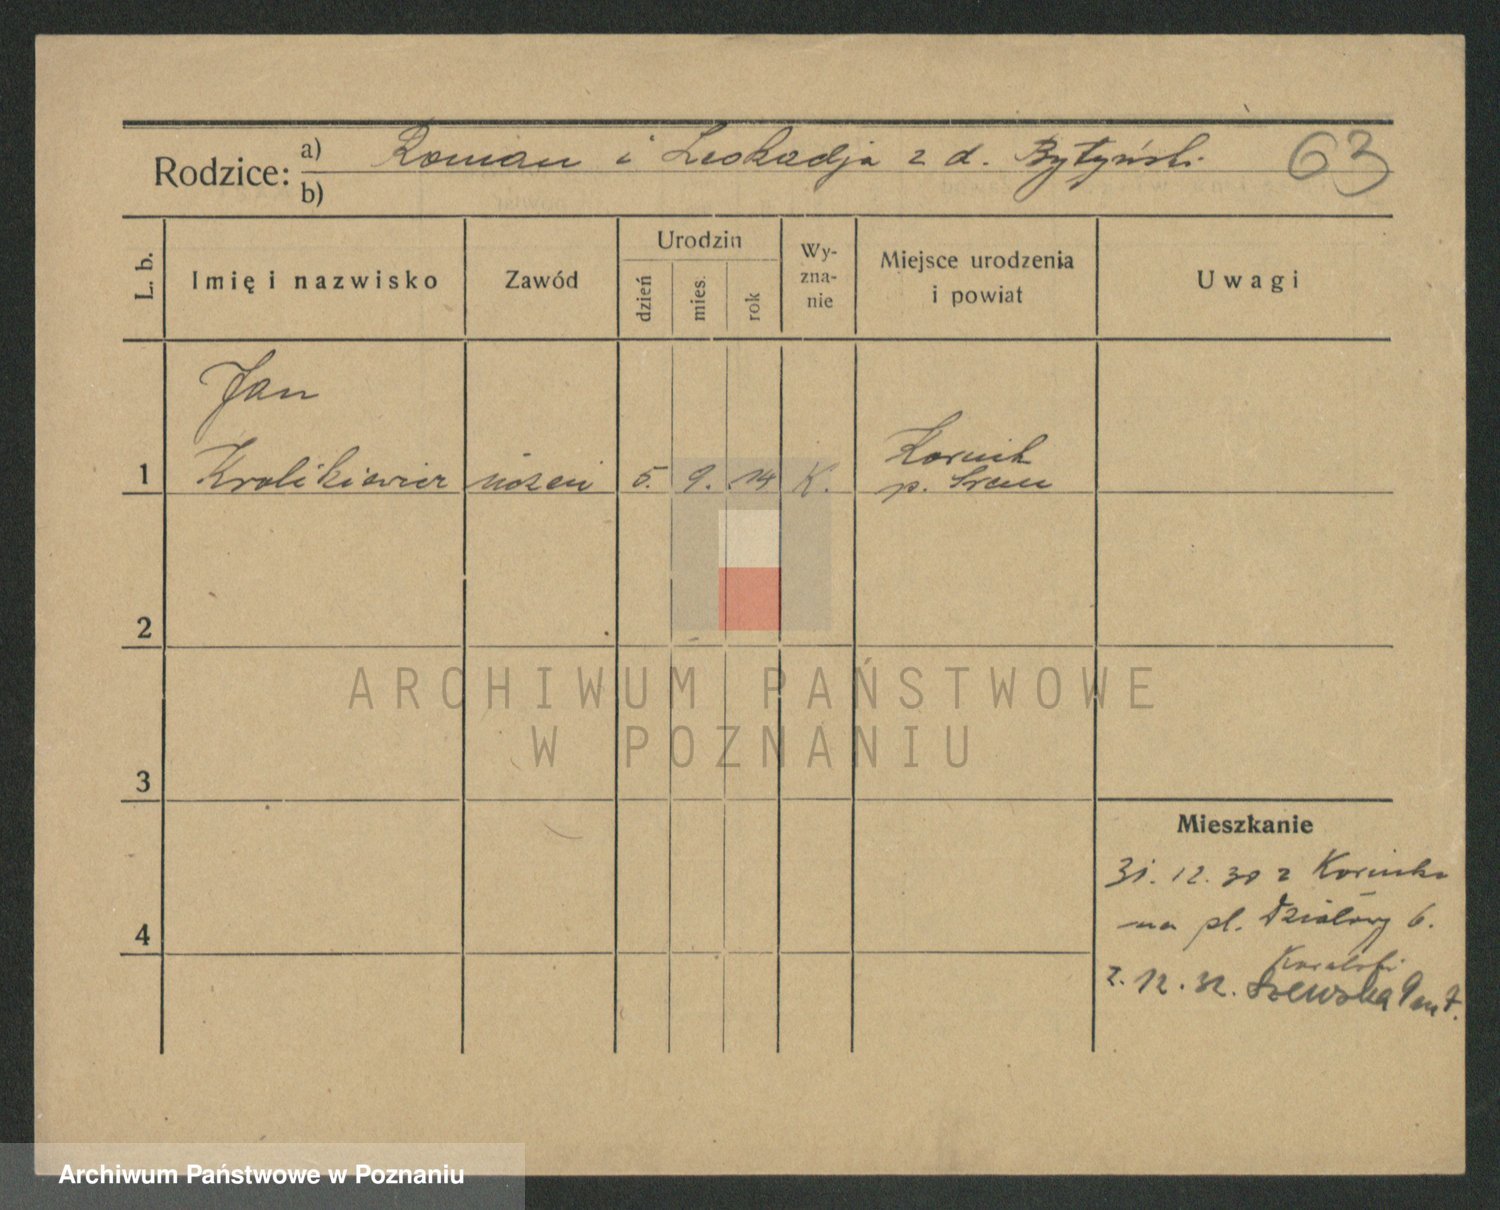 Rodzice: a) Roman i Leokadja z d. Bytyński 63
b)
L. b. Imię i nazwisko Zawód Urodzin dzień mies. rok Wy-zna-nie Miejsce urodzenia i powiat Uwagi
Jan
1 Krolikiewicz uczeń 5. 9. 14 K. Kornik
p. Srem
2
ARCHIWUM PAŃSTWOWE
W POZNANIU
3
Mieszkanie
31.12.30 z Kornika
na pl. Działowy 6.
4
Kowalski
2.12.32. Szewska
Archiwum Państwowe w Poznaniu